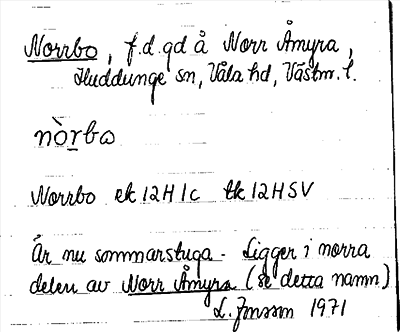 Norrbo, f.d. gd å Norr Åmyra,
Huddunge sn, Våla hd, Västm. l.
nòrbω
Norrbo ek 12H1c tk 12HSV
Är nu sommarstuga. Ligger i norra
delen av Norr Åmyra (se detta namn)
L. Jonsson 1971